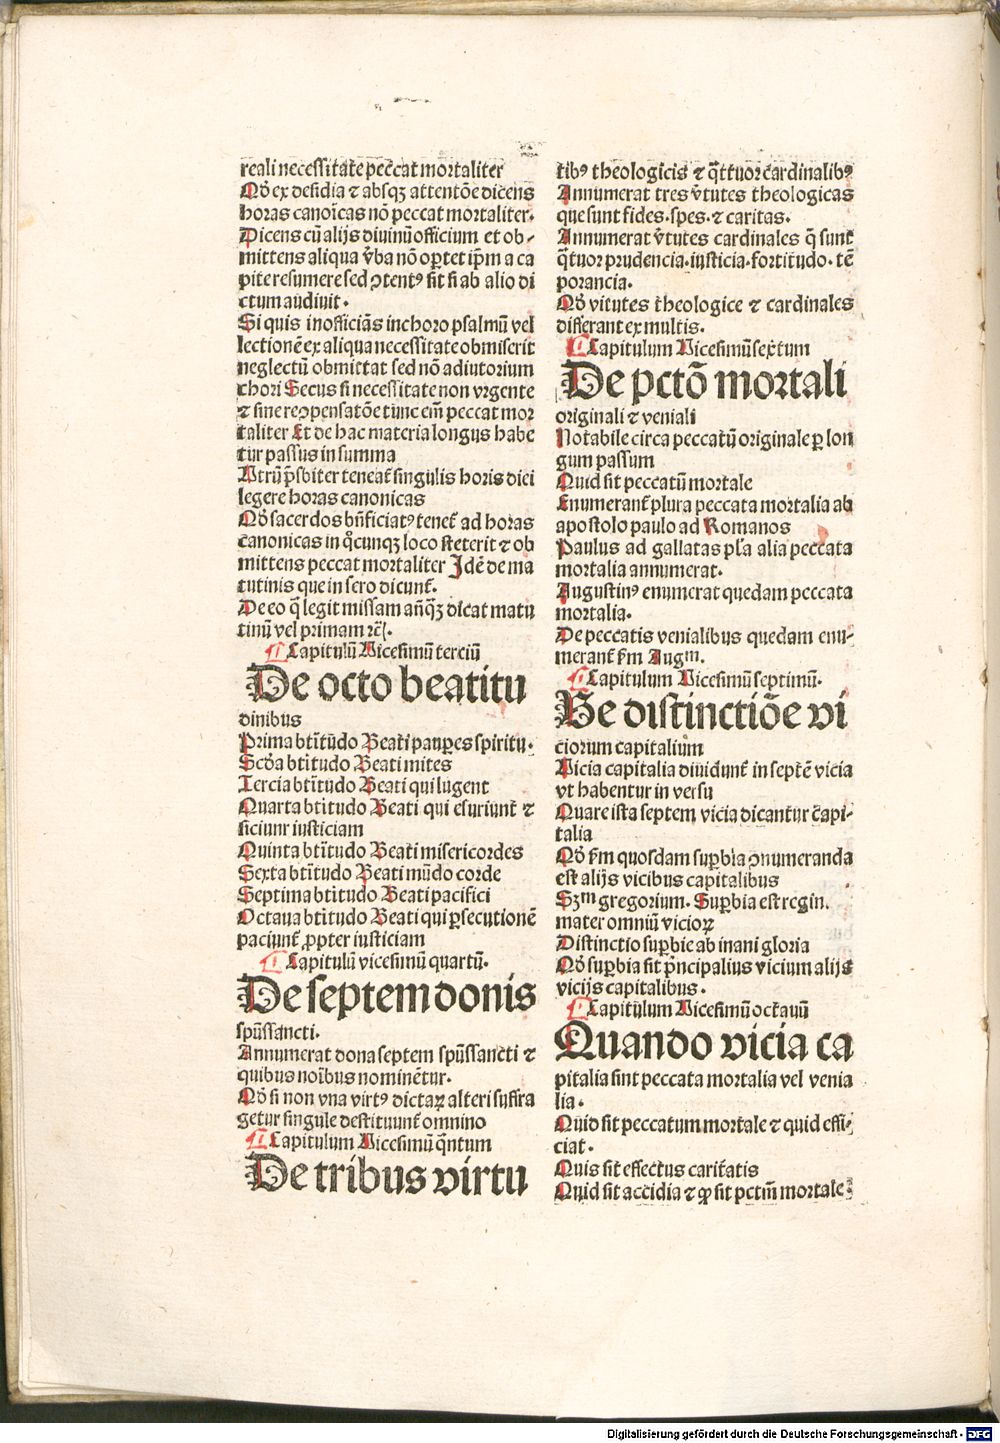 reali necessitate peccat mortaliter
Qď ex desidia ⁊ absqꝫ attentõe dicens
horas canoĩcas nõ peccat mortaliter.
Dicens cũ alijs diuinũ officium et ob-
mittens aliqua v̾ba nõ oꝑtet ip̃m a ca
pite resumere sed ꝯtentꝰ sit si ab alio di
ctum audiuit.
Si quis inofficiãs in choro psalmũ vel
lectionẽ ex aliqua necessitate obmiserit
neglectũ obmittat sed nõ adiutorium
chori Secus si necessitate non vrgente
⁊ sine reꝯpensatõe tunc em̃ peccat mor
taliter Et de hac materia longiꝰ habe
tur passus in summa
Vtrũ p̃sbiter teneat̾ singulis horis diei
legere horas canonicas
Qď sacerdos bñficiatꝰ tenet̾ ad horas
canonicas in q̊cunqꝫ loco steterit ⁊ ob
mittens peccat mortaliter Idẽ de ma
tutinis que in sero dicunt̾.
De eo q̃ legit missam añqꝫ dicat matu
tinũ vel primam rc̃.
¶ Capitulũ Vicesimũ terciũ
De octo beatitu
dinibus
Prima btĩtudo Beati pauꝑes spiritu.
Scďa btĩtudo Beati mites
Tercia btĩtudo Beati qui lugent
Quarta btĩtudo Beati qui esuriunt ⁊
siciunr iusticiam
Quinta btĩtudo Beati misericordes
Sexta btĩtudo Beati mũdo corde
Septima btĩtudo Beati pacifici
Octaua btĩtudo Beati qui ꝑsecutionẽ
paciunt̾ ꝓpter iusticiam
¶ Capitulũ vicesimũ quartũ.
De septem donis
spũssancti.
Annumerat dona septem spũssancti ⁊
quibus noĩbus nominẽtur.
Qď si non vna virtꝰ dictaꝝ alteri suffra
getur singule destituunt̾ omnino
¶ Capitulum Vicesimũ q̃ntum
De tribus virtu
tibꝰ theologicis ⁊ q̃ttuor cardinalibꝰ
Annumerat tres v̾tutes theologicas
que sunt fides. spes. ⁊ caritas.
Annumerat v̾tutes cardinales q̃ sunt
q̃tuor prudencia. iusticia. fortitudo. tẽ
porancia.
Qď vitutes theologice ⁊ cardinales
differant ex multis.
¶ Capitulum Vicesimũ sextum
De pctõ mortali
originali ⁊ veniali
Notabile circa peccatũ originale ꝑ lon
gum passum
Quid sit peccatũ mortale
Enumerant̾ plura peccata mortalia ab
apostolo paulo ad Romanos
Paulus ad gallatas pl̃a alia peccata
mortalia annumerat.
Augustinꝰ enumerat quedam peccata
mortalia.
De peccatis venialibus quedam enu-
merant̾ f̃m Augᵐ.
¶ Capitulum Vicesimũ septimũ.
De distinctiõe vi
ciorum capitalium
Vicia capitalia diuidunt̾ in septẽ vicia
vt habentur in versu
Quare ista septem vicia dicantur capi-
talia
Qď f̃m quosdam suꝑbia ꝯnumeranda
est alijs vicibus capitalibus
Sꝫᵐ gregorium. Suꝑbia est regin.
mater omniũ vicioꝝ
Distinctio suꝑbie ab inani gloria
Qď suꝑbia sit p̃ncipalius vicium alijs
vicijs capitalibus.
¶ Capitulum Vicesimũ octauũ
Quando vicia ca
pitalia sint peccata mortalia vel venia
lia.
Quid sit peccatum mortale ⁊ quid effi-
ciat.
Quis sit effectus caritatis
Quid sit accidia ⁊ ꝙ sit pctm̃ mortale
Digitalisierung gefördert durch die Deutsche Forschungsgemeinschaft - DFG